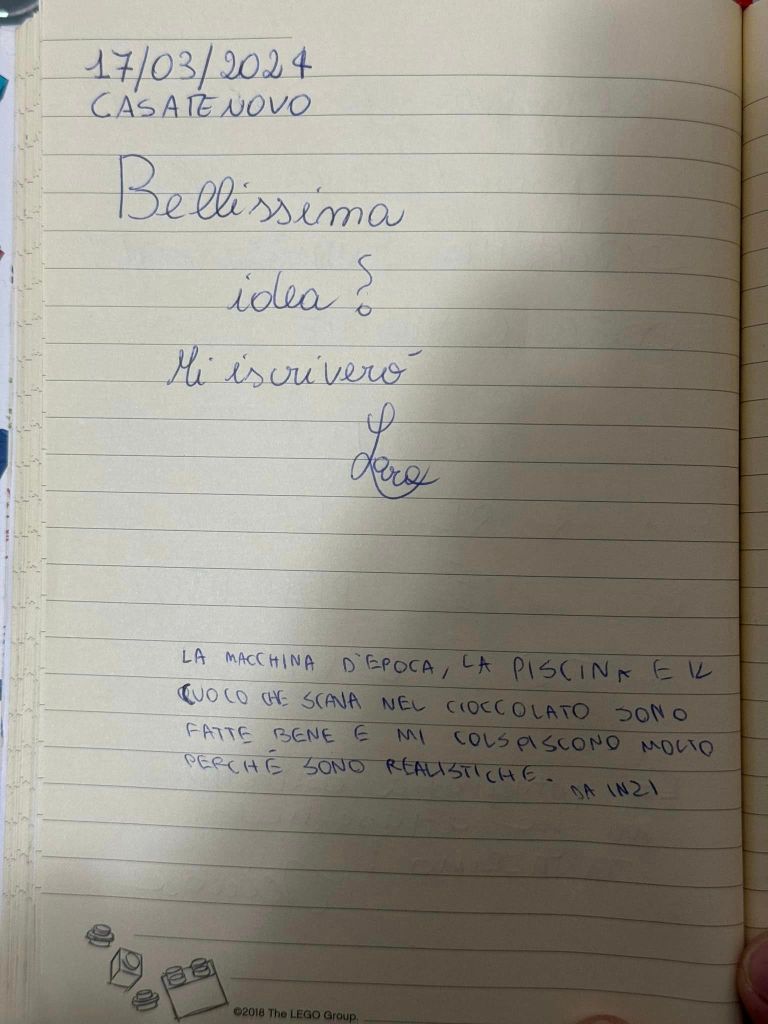 17/03/2024
CASATENOVO
Bellissima
idea?
Mi iscriverò
Lara
LA MACCHINA D'EPOCA, LA PISCINA E IL
CUOCO CHE SCAVA NEL CIOCCOLATO SONO
FATTE BENE E MI COLSPISCONO MOLTO
PERCHÉ SONO REALISTICHE.
DA INZI
©2018 The LEGO Group.